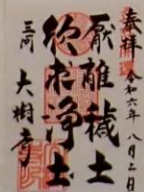 奉拝 令和六年八月二日
厭離穢土
欣求浄土
三河 大樹寺